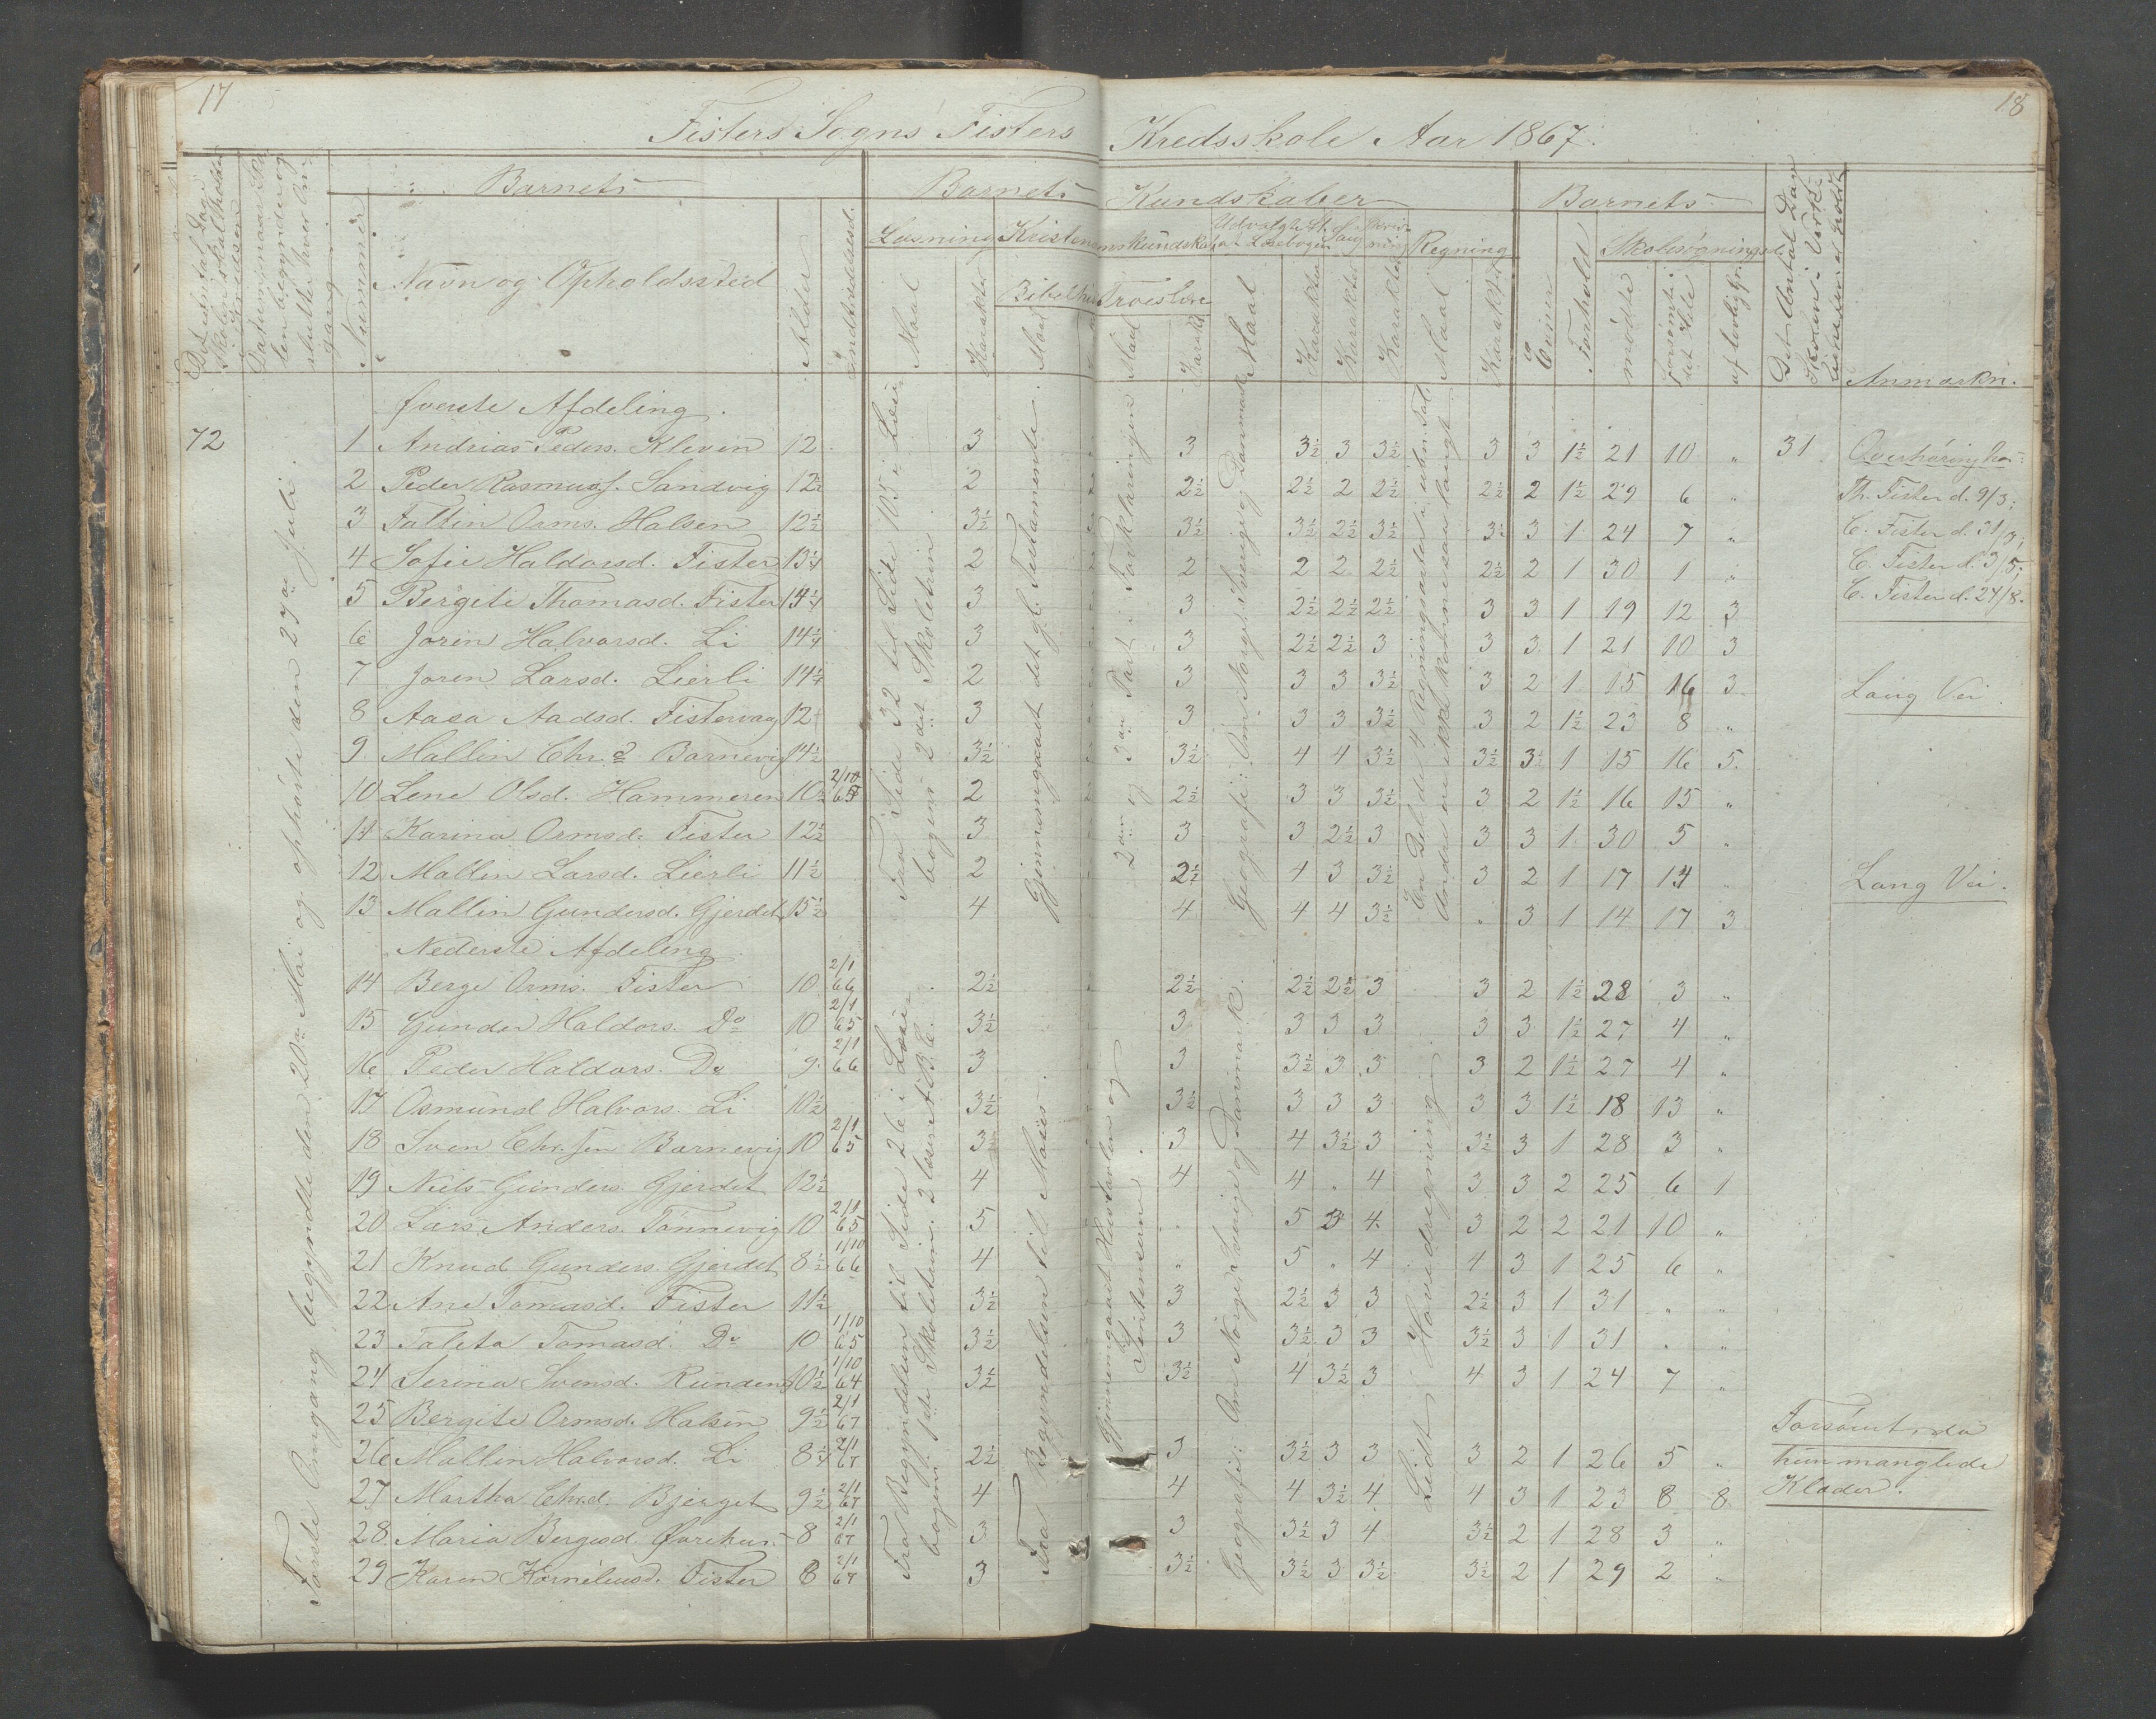 17
18
Fisters Sogns Fisters Kredsskole Aar 1867.
Det Antal Dage Skolen skal holdes i Kredsen
Datum, naar Skolen begynder og slutter hver Omgang
Barnets
Barnets Kundskaber
Barnets
Nummer
Navn og Opholdssted
Alder
Indtrædelsesd.
Læsning
Maal
Karakter
Kristendomskundskab
Bibelhist
Maal
Troeslære
Maal
Karakt
Udvalgte St. af Læsebogen
Maal
Karakter
Sang
Karakter
Skrivning
Karakter
Regning
Maal
Karakter
Evner
Forhold
Skolesøgningsd.
mødte
forsømte det Hele
af lovlig Gr.
Det Antal Dage Skolen i Virkeligheden er holdt
Anmærkn.
72
Første Omgang begyndte den 20de Mai og ophørte den 27de Juli.
Øverste Afdeling.
Fra Side 32 til Side 105 i Læsebogens 2det Skoletrin.
Gjennemgaaet det gl. Testamente.
2den og 3die Part i Forklaringen
Geografi: Om Norge, Sverig og Danmark
En Del de 4 Regningsarter i uben. Tal.
Andre ere ikke komne saa langt
1 Andrias Peders. Kleven 12 3 3 3½ 3 3½ 3 3 1½ 21 10 „ 31
2 Peder Rasmuss. Sandvig 12½ 2 2½ 2½ 2 2½ 2½ 2 1½ 29 6 „
3 Faltin Orms. Halsen 12½ 3½ 3½ 3½ 2½ 3½ 3½ 3 1 24 7 „
4 Sofie Haldorsd. Fister 13¼ 2 2 2 2 2½ 2½ 2 1 30 1 „
5 Bergite Thomasd. Fister 14¼ 3 3 2½ 2½ 2½ 3 3 1 19 12 3
6 Joren Halvorsd. Li 14¼ 3 3 2½ 2½ 3 3 3 1 21 10 3
7 Joren Larsd. Lierli 14¼ 2 3 3 3 3½ 3 2 1 15 16 3
8 Aasa Aadsd. Fistervaag 12 3 3 3 3 3½ 3 2 1½ 23 8 „
9 Mallin Chr.d. Barnevig 14½ 3½ 3½ 4 4 3½ 3½ 3½ 1 15 16 5
10 Lene Olsd. Hammeren 10½ 2/10 65 2 2½ 3 3 3½ 3 2 1½ 16 15 „
11 Karina Ormsd. Fister 12½ 3 3 3 2½ 3 3 3 1 30 5 „
12 Mallin Larsd. Lierli 11½ 2 2½ 4 3 3½ 3 2 1 17 14 „
13 Mallin Gundersd. Gjerdet 15½ 4 4 4 4 3½ „ 3 1 14 17 3
Overhøring hos
Th. Fister d. 9/3;
C. Fister d. 31/3;
C. Fister d. 3/5;
C. Fister d. 24/8.
Lang Vei.
Lang Vei.
Nederste Afdeling
Fra Begyndelsen til Side 26 i Læsebogens 1ste Skoletrin. 2 læser ABC.
Fra Begyndelsen til Moses.
Gjennemgaaet Historien og Lutherrsen.
Geografi: Om Norge, Sverige og Danmark.
Lidt Hovedregning.
14 Berge Orms. Fister 10 2/1 66 2½ 2½ 2½ 2½ 3 3 2 1½ 28 3 „
15 Gunder Haldors. Do 10 2/1 65 3½ 3 3 3 3 3 3 1½ 27 4 „
16 Peder Haldors. Do 9 2/1 66 3 3 3½ 3 3 3 2 1½ 27 4 „
17 Osmund Halvors. Li 10½ 3½ 3½ 3 3 3 3 3 1½ 18 13 „
18 Sven Chr.sen Barnevig 10 2/1 65 3 3 4 3½ 3 3½ 3 1 28 3 „
19 Niels Gunders. Gjerdet 12½ 4 4 4 „ 4 3 3 2 25 6 1
20 Lars Anders. Tønnevig 10 2/1 65 5 „ 5 3 4 3 2 2 21 10 „
21 Knud Gunders. Gjerdet 8½ 1/10 66 4 „ 5 „ 4 4 3 1 25 6 „
22 Ane Tomasd. Fister 11½ 3½ 3 2½ 3 3 2½ 3 1 31 „ „
23 Taleta Tomasd. Do 10 1/10 65 3½ 3 3½ 3 3 3½ 3 1 31 „ „
24 Serina Svensd. Runden 10½ 1/10 64 3½ 3½ 4 3½ 3 4 3 1 24 7 „
25 Bergite Ormsd. Halsen 9½ 2/1 67
26 Mallin Halvorsd. Li 8¼ 2/1 67 2½ 3 3½ 3 3 3 2 1 26 5 „
27 Martha Chr.d. Bjerget 9½ 2/1 67 4 4 4 3½ 4 4 3 1 23 8 8
28 Maria Bergesd. Øvrehus 8 2/1 67 3 3 3½ 3 4 3½ 2 1 28 3 „
29 Karen Kornéliusd. Fister 8 2/1 67 3 3½ 3½ 3 3½ 3½ 2 1 29 2 „
Forsømt, da
hun manglede
Klæder.